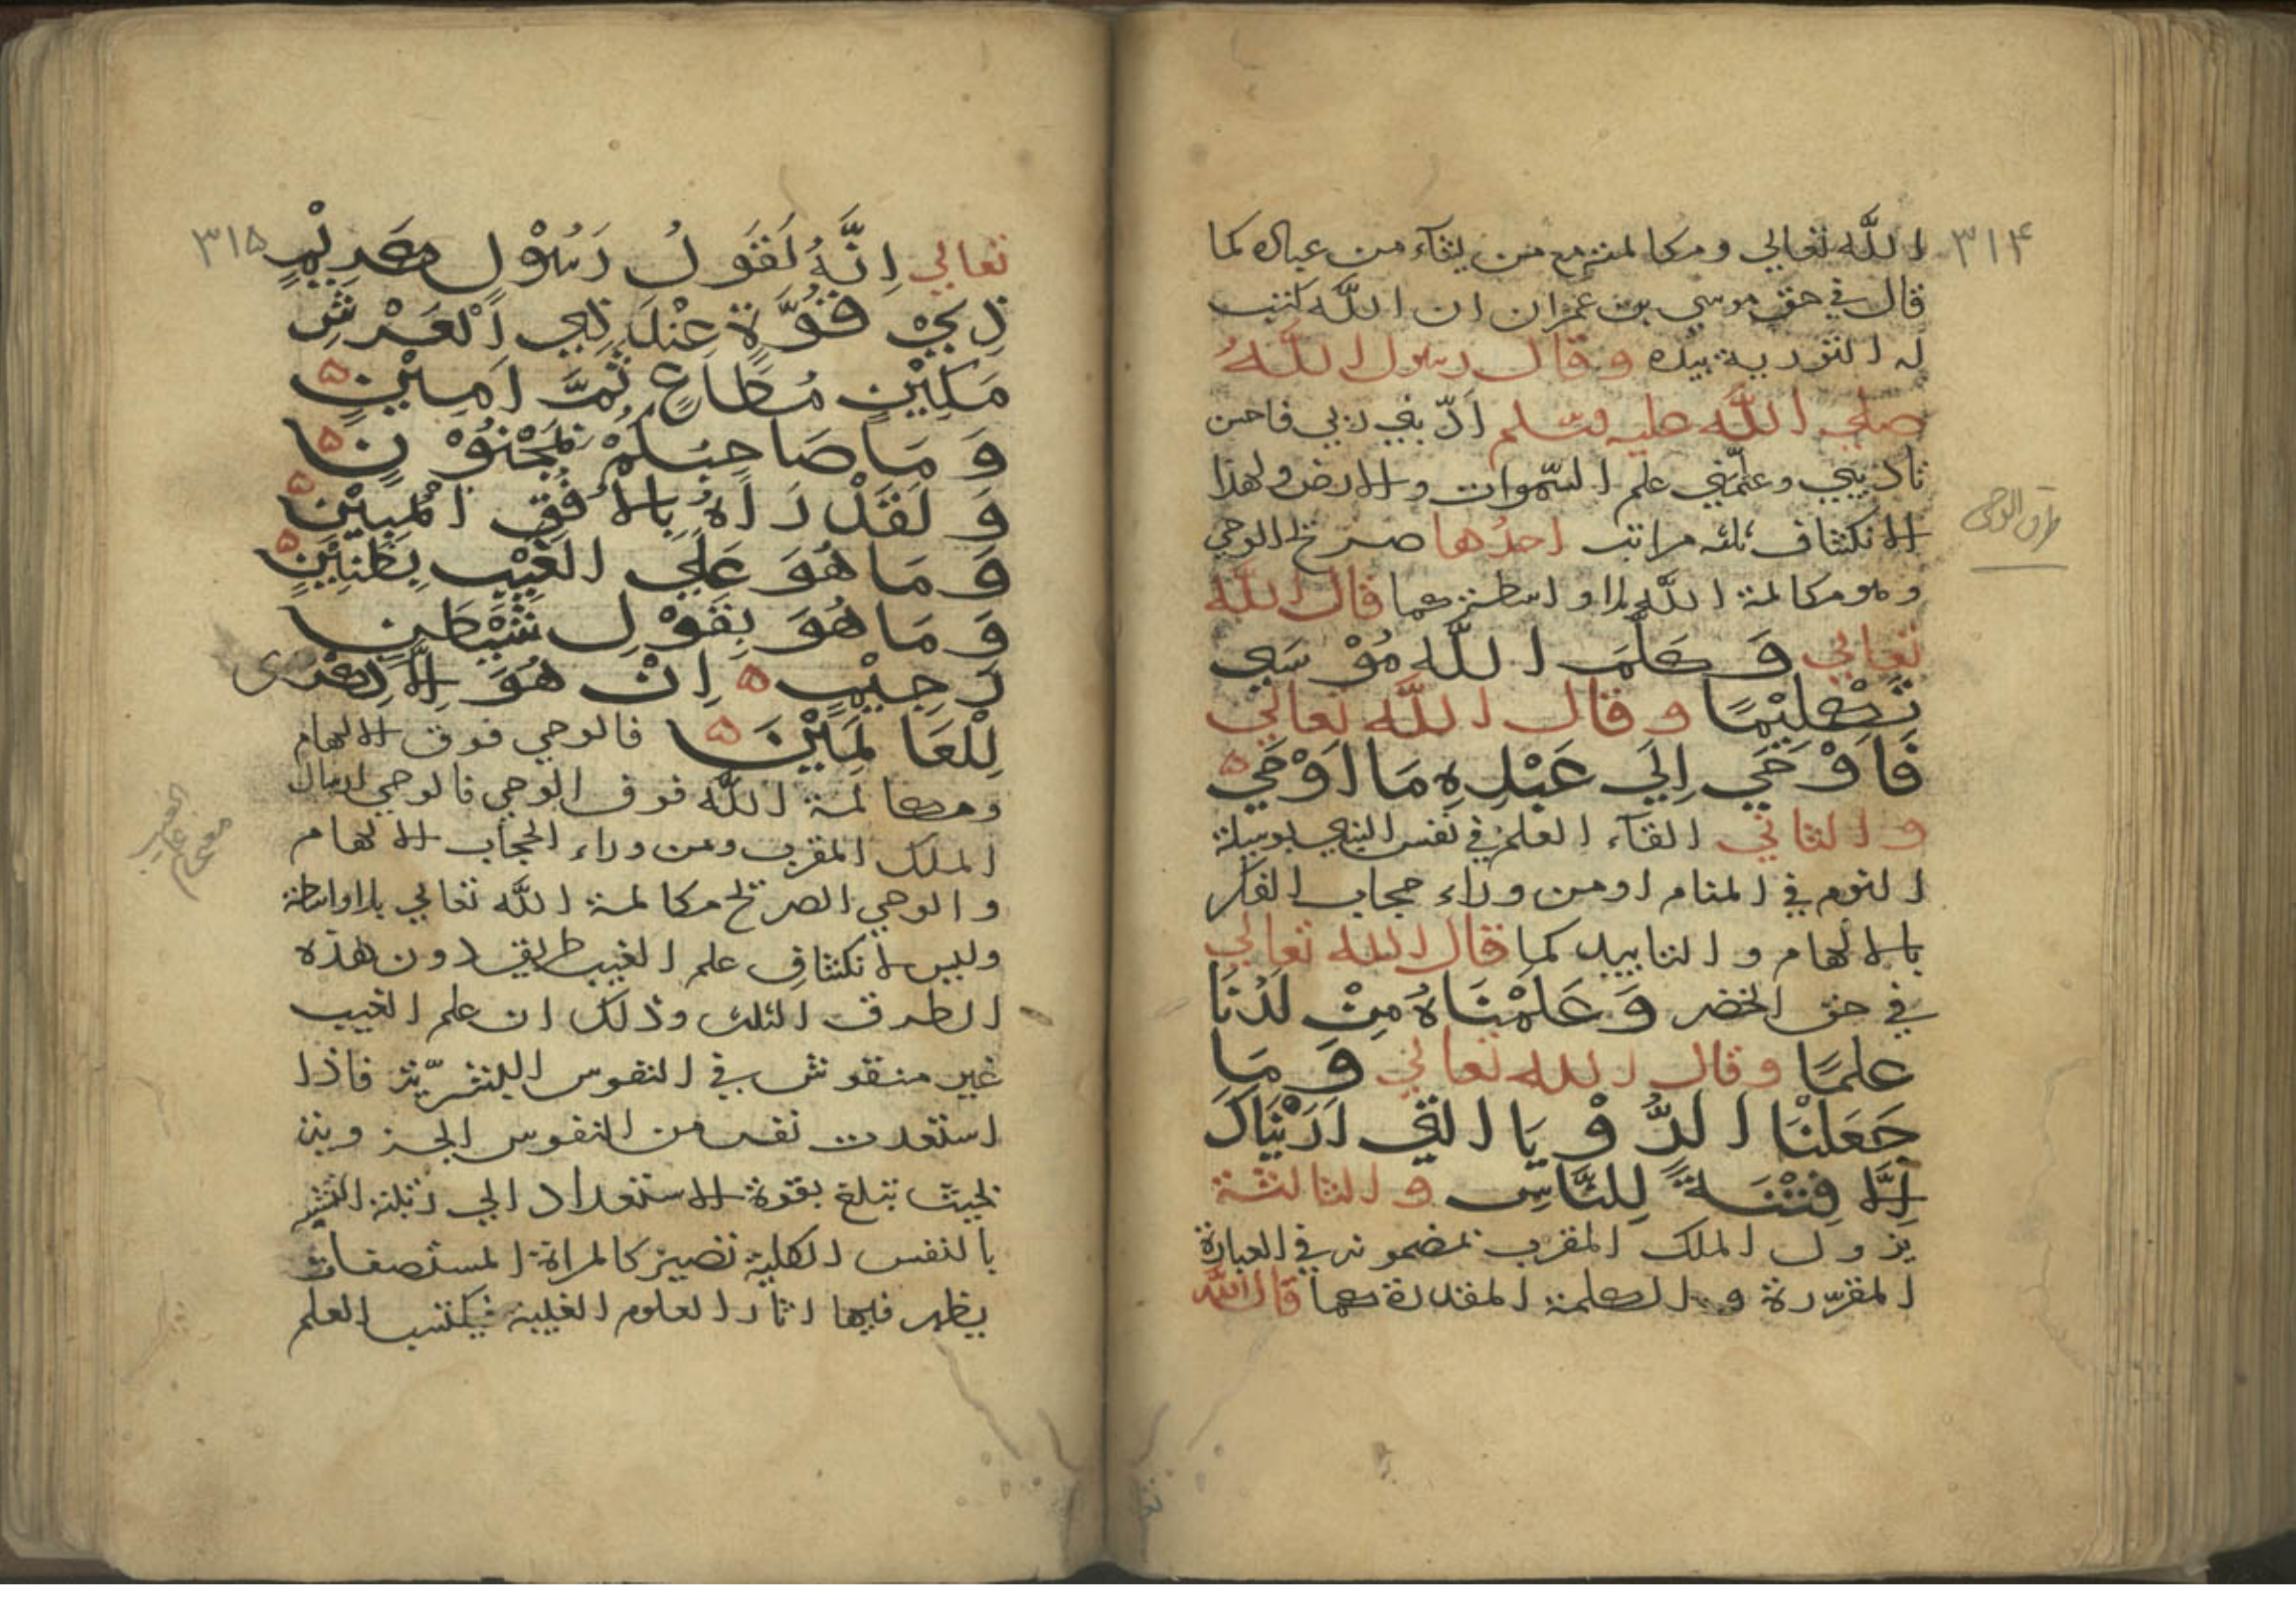 ٣١٤
الله تعالي ومكالمته مع من يشآء من عباده كما
قال في حق موسي بن عمران ان الله كتب
له التورية بيده وقال رسول اللهُ
صلي الله عليه وسّلم ادّبني ربي فاحسن
تاديبي وعلّمني علم السّموات والارض ولهذا
الانكشاف ثلثه مراتب احدُها صريح الوحي
وهو مكالمة الله بلا واسطة كما قال الله
تعالي وَكَلَّمَ اللّٰه مُوْسَي
تَكْلِيْمًا وقال اللّٰه تعالي
فَاَوْحَي اِلَي عَبْدِهِ مَا اَوْحَي ه
والثاني القآء العلم في نفس النبي بوسيلة
النوم في المنام اومن وراء حجاب الفكر
بالالهام والتاييد كما قال الله تعالي
في حق الخضر وَعَلَّمْنَاهُ مِنْ لَدُنَّا
علمًا وقال الله تعالي وَمَا
جَعَلْنَا الرُّوْيَا الَّتِي اَرَيْنَاكَ
اِلَّا فِتْنَةً لِلنَّاسِ والثالثة
نزول الملك المقرب بمضمونه في العبارة
المقرّرة والكلمة المقدرة كما قال الله
طرق الوحى
٣١٥
تعالي اِنَّهُ لَقَوْلُ رَسُوْلٍ كَرِيْمٍ
ذِيْ قُوَّةٍ عِنْدَ ذِي الْعَرْشِ
مَكِيْنٍ مُطَاعٍ ثَمَّ اَمِيْنٍ ه
وَمَا صَاحِبُكُمْ بِمَجْنُوْنٍ ه
وَلَقَدْ رَاٰهُ بِالْاُفُقِ الْمُبِيْنِ ه
وَمَا هُوَ عَلَي الْغَيْبِ بِظَنِيْنٍ ه
وَمَا هُوَ بِقَوْلِ شَيْطٰنٍ
رَجِيْمٍ ه اِنْ هُوَ اِلَّا ذِكْرٰى
لِلْعَالَمِيْنَ ه فالوحي فوق الالهام
ومكالمة الله فوق الوحي فالوحي ارسال
الملك المقرب ومن وراء الحجاب الالهام
والوحي الصريح مكالمة الله تعالي بلا واسطة
وليس لانكشاف علم الغيب طريق دون هذه
الطرق الثلث وذلك ان علم الغيب
غير منقوش في النفوس البشريّة فاذا
استعدت نفس من النفوس الجزوية
بحيث تبلغ بقوة الاستعداد الي رتبة التشبه
بالنفس الكلية تصير كالمراة المستصفات
يظهر فيها اثار العلوم الغيبية فيكتسب العلم